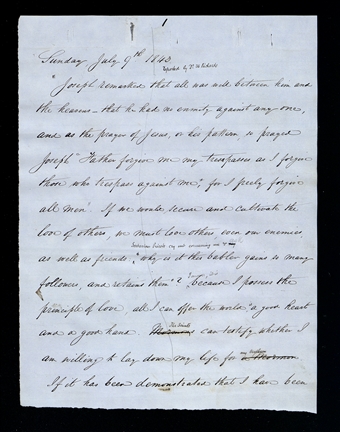 1
Sunday July 9th 1843
Reported by Dr W. Richards
"Joseph remarked that all was well between him and
the heavens – that he had no enmity against any one,
and as the prayer of Jesus, or his pattern, so prayed
Joseph "Father forgive me my trespasses as I forgive
those who trespass against me," for I freely forgive
all men. If we would secure and cultivate the
love of others, we must love others, even our enemies
as well as friends,
Sectarian Priests cry out concerning me
"why is it this babler gains so many
followers, and retains them"? because I possess the
principle of love. all I can offer the world "a good heart
and a good hand.
The Saints
Mormons can testify whether I
am willing to lay down my life for
my brethren
a Mormon
If it has been demonstrated that I have been